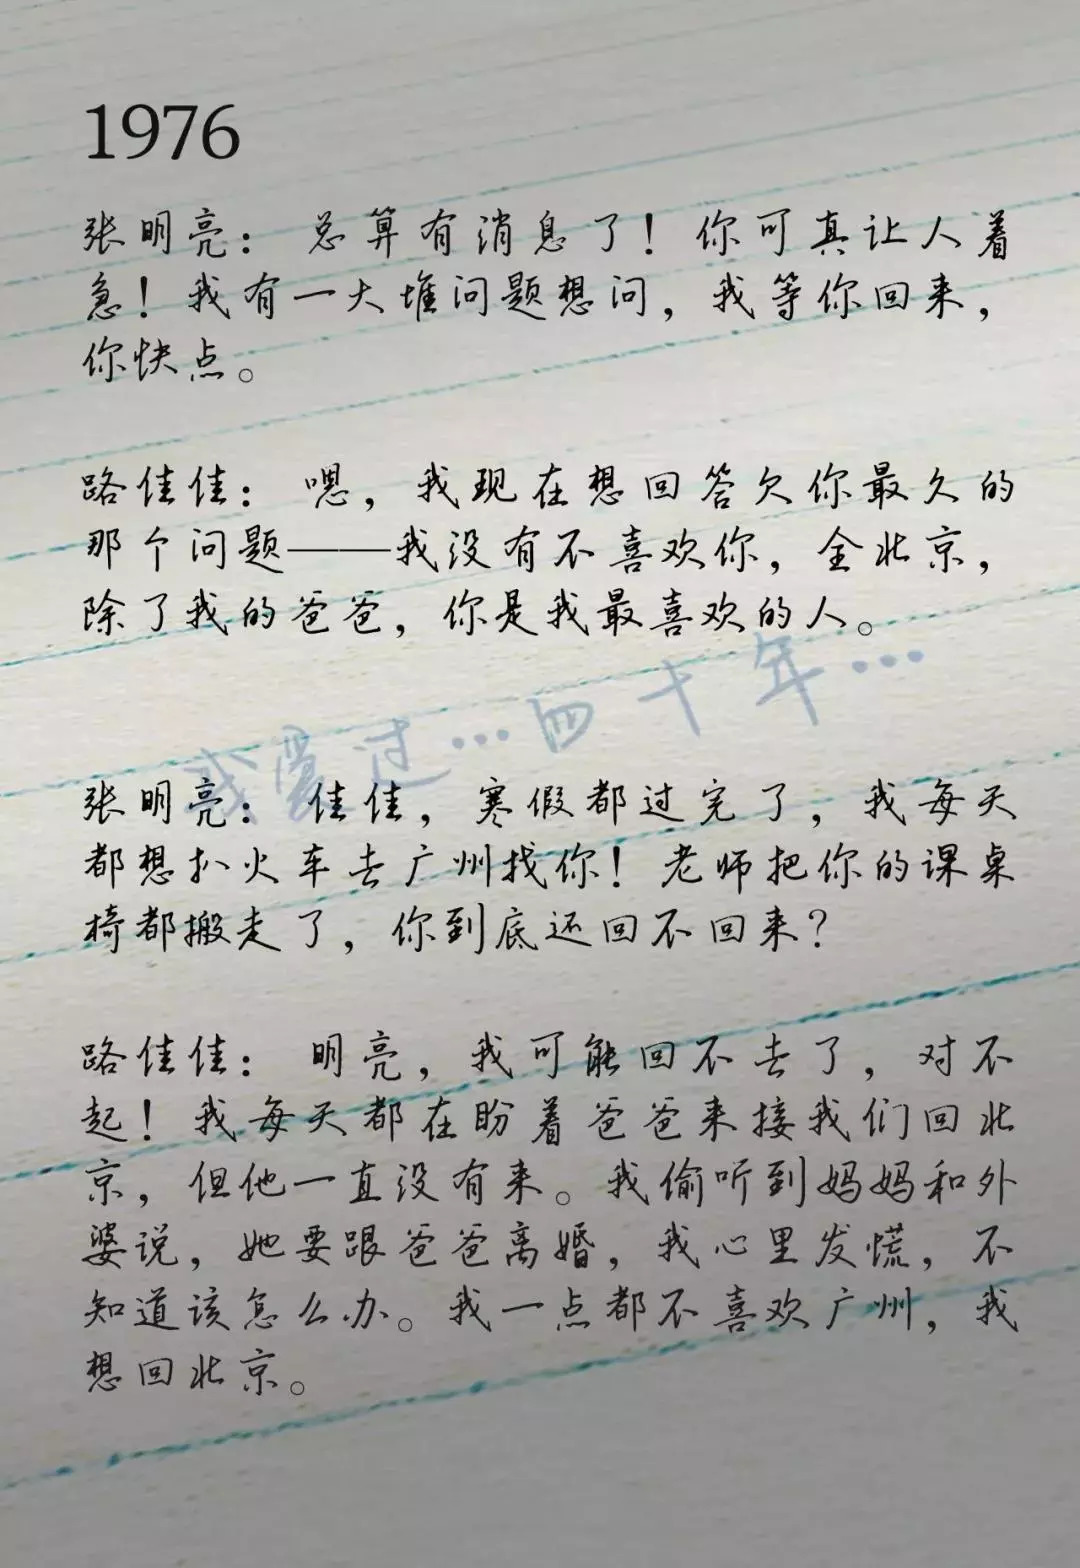 1976
张明亮： 总算有消息了！你可真让人着
急！我有一大堆问题想问，我等你回来，
你快点。
路佳佳： 嗯，我现在想回答欠你最久的
那个问题——我没有不喜欢你，全北京，
除了我的爸爸，你是我最喜欢的人。
过…四十年…
张明亮： 佳佳，寒假都过完了，我每天
都想扒火车去广州找你！老师把你的课桌
椅都搬走了，你到底还回不回来？
路佳佳： 明亮，我可能回不去了，对不
起！我每天都在盼着爸爸来接我们回北
京，但他一直没有来。我偷听到妈妈和外
婆说，她要跟爸爸离婚，我心里发慌，不
知道该怎么办。我一点都不喜欢广州，我
想回北京。